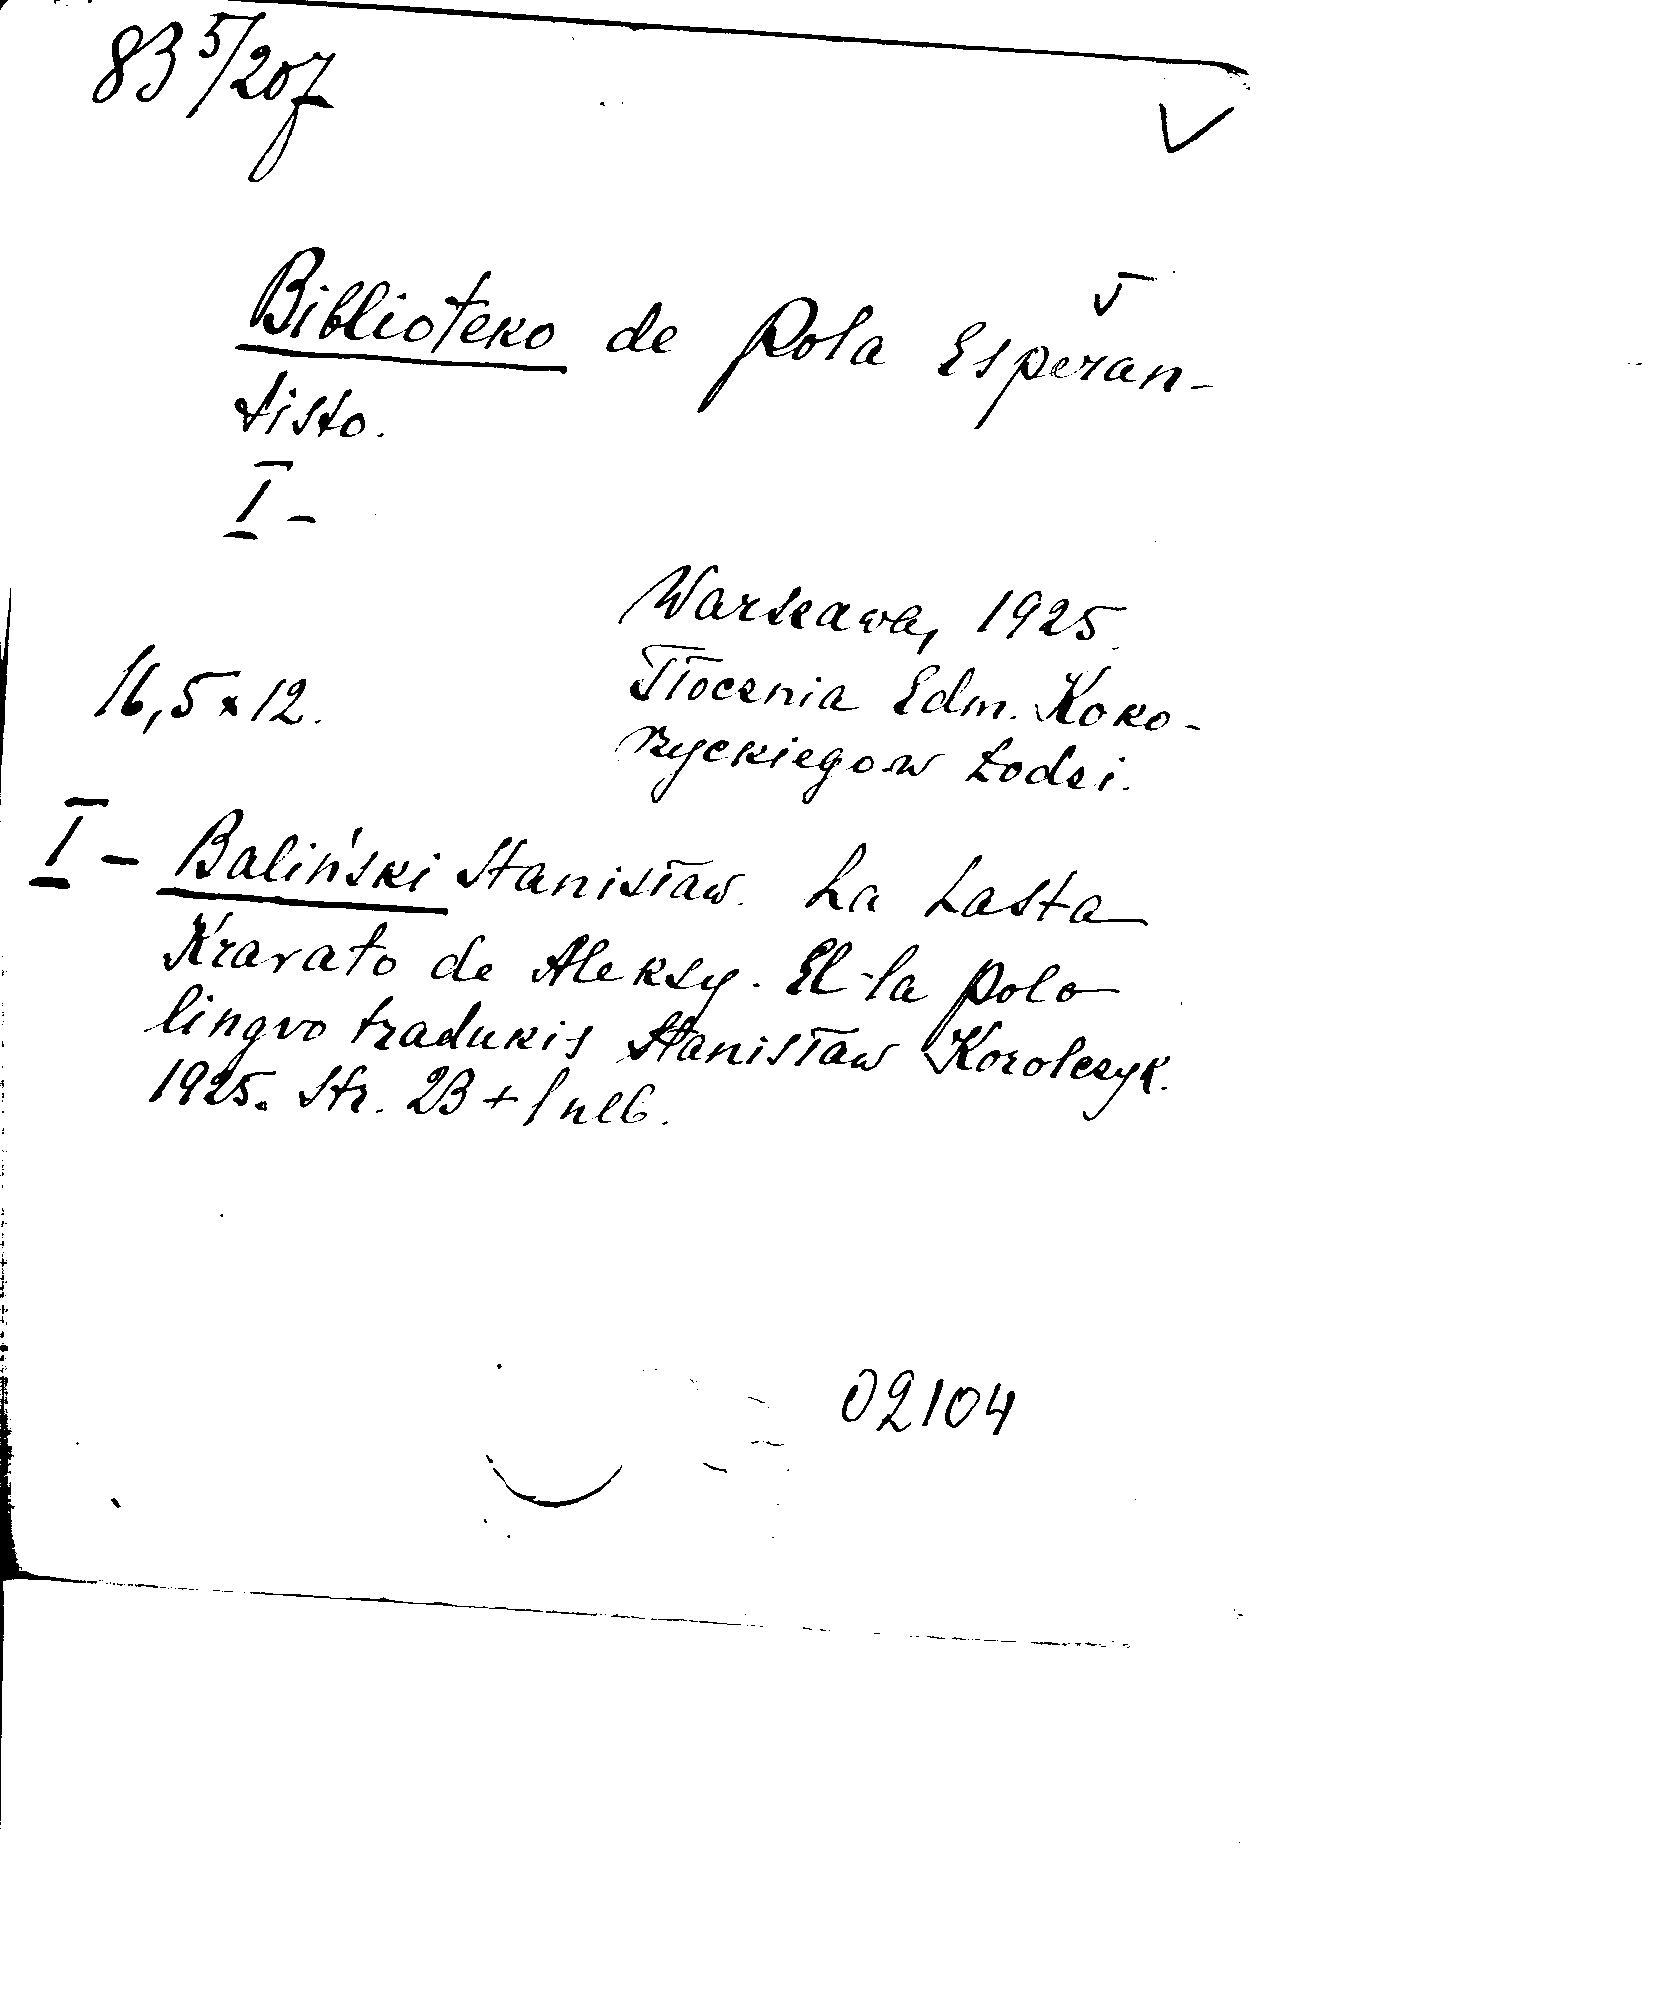 83 5/207
V
Biblioteko de Pola Esperan-
tisto.
I -
Warszawa, 1925.
16,5 x 12.
Tłocznia Edm. Koko-
rzyckiego w Łodzi.
I - Baliński Stanisław. La Lasta
Kravato de Aleksy. El la pola
lingvo tradukis Stanisław Korolczyk.
1925. Str. 23 + 1 nlb.
02104